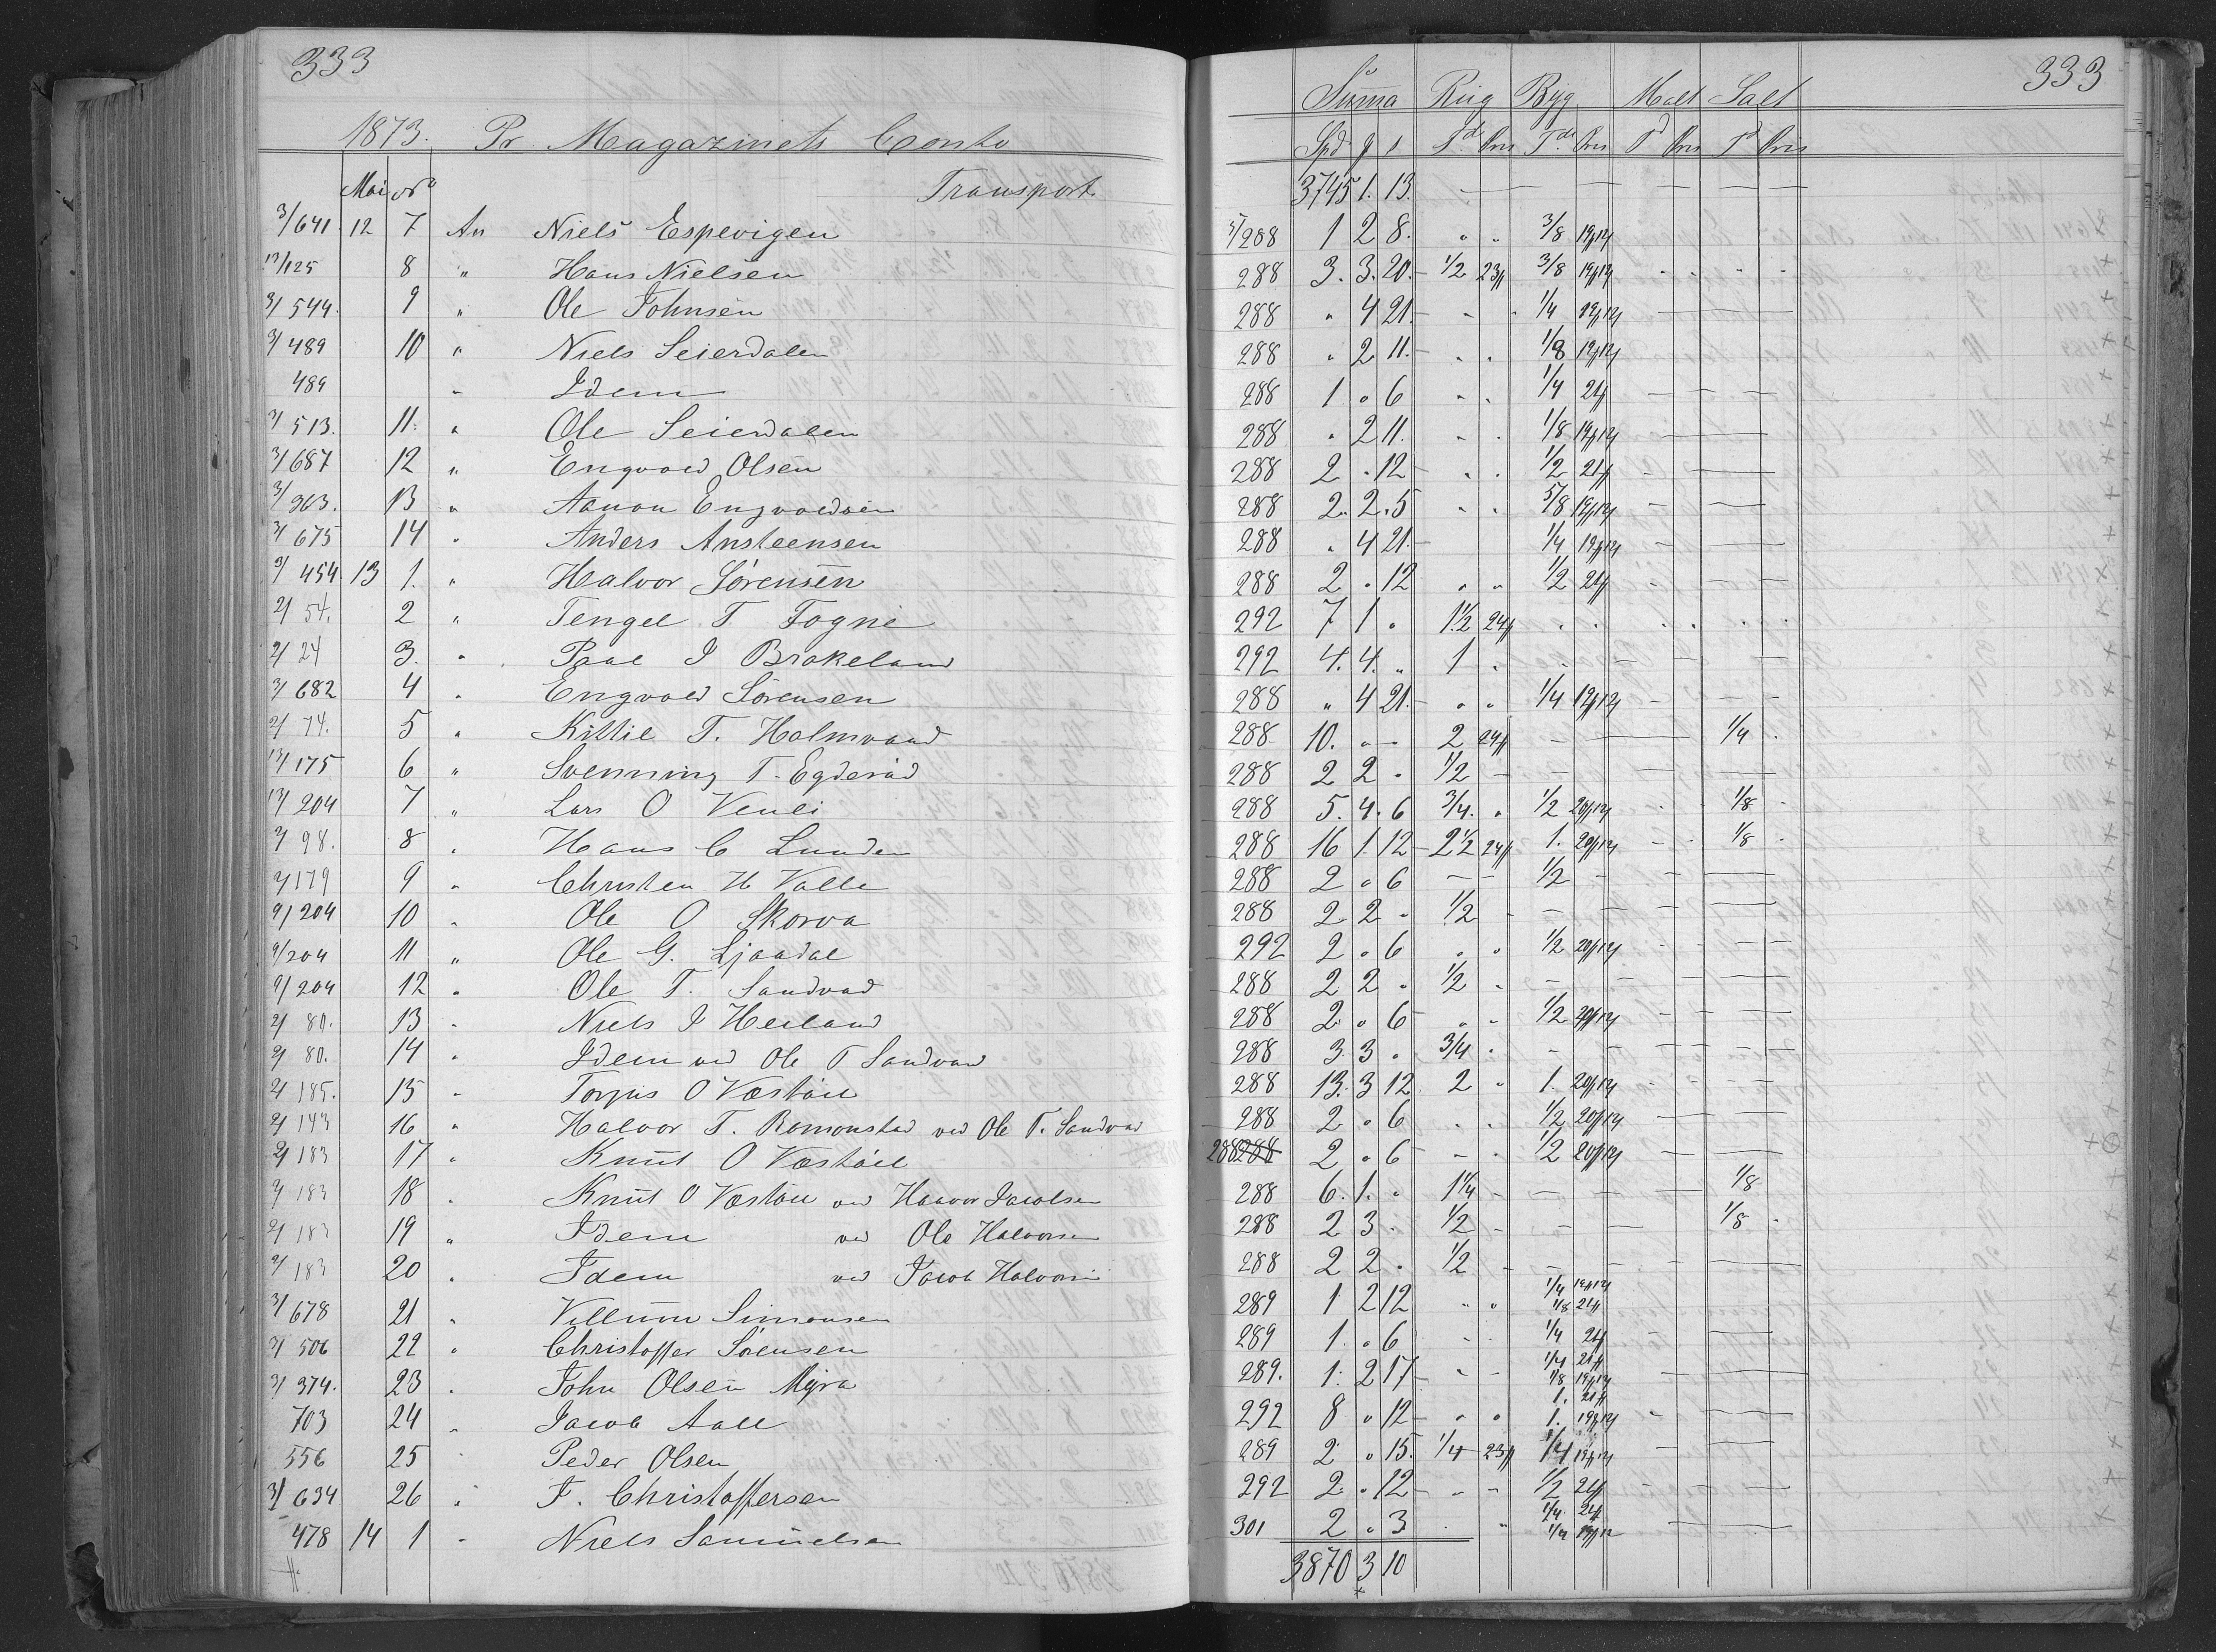 333 333
Suma Rug Byg Malt Salt
1873. Pr Magazinets Conto Spd ƒ s Td Pris Tdr Pris Td Pris Td Pris
Mai No Transport 3745 1. 13.
3/641 12 7 An Niels Espevigen 5/288 1 2 8. " " 3/8
13/125 8 " Hans Nielsen 288 3. 3. 20. 1/2 23 3/8
3/544. 9 " Ole Johnsen 288 " 4 21. 1/4
3/489 10 " Niels Seierdalen 288 " 2 11. 1/8
489 " Idem 288 1 " 6 1/4 21
3/513. 11. " Ole Seierdalen 288 " 2 11. 1/8
3/687 12 " Engvold Olsen 288 2 " 12 1/2 21
3/363. 13 " Aanon Engvoldsen 288 2. 2. 5 5/8
3/675 14 " Anders Ansteensen 288 " 4 21. 1/4
3/454. 13 1. " Halvor Sørensen 288 2 " 12 1/2 21
2/54. 2 " Tengel T Fogne 292 7 1 " 1 1/2 24
2/24 3. " Paal J Brakeland 292 4. 4. " 1 "
3/682 4 " Engvold Sørensen 288 " 4 21. 1/4
2/74. 5 " Kittil T. Holmvand 288 10. " — 2 24 1/4
13/175 6 " Svenning T. Egderåd 288 2 2 " 1/2
13/204 7 " Lars O Venli 288 5. 4. 6 3/4. " 1/2 1/8
2/98. 8 " Hans C Lunden 288 16 1. 12 2 1/2 24 1. 1/8
2/179 9 " Christen H Valle 288 2 " 6 1/2
9/204 10 " Ole O Skorva 288 2 2 " 1/2
9/204 11 " Ole G. Ljaadal 292 2 " 6 1/2
9/204 12 " Ole T. Sandvad 288 2 2 " 1/2
2/80. 13 " Niels J Heiland 288 2. " 6 1/2
2/80. 14 " Idem ved Ole T Sandvad 288 3. 3 " 3/4
2/185. 15 " Torjus O Vestøl 288 13. 3 12 2 " 1.
2/143 16 " Halvor T. Romonstad ved Ole T. Sandvad 288 2 " 6 1/2
2/183 17 " Knut O Vestøel 288 288 2 " 6 1/2
2/183 18 " Knut O Vestøel ved Haavor Jacobsen 288 6. 1. " 1 1/4 1/8
2/183 19 " Idem ved Ole Halvorsen 288 2 3 " 1/2 1/8
2/183 20 " Idem ved Jacob Halvorsen 288 2 2 " 1/2
3/678 21 " Villum Simonsen 289 1 2 12 1/4 1/8 21
3/506 22 " Christoffer Sørensen 289 1. " 6 1/4 21
3/374. 23 " John Olsen Myra 289. 1. 2 17 1/4 21 1/8
703 24 " Jacob Aall 292 8 " 12 1. 21 1.
556 25 " Peder Olsen 289 2 " 15. 1/4 23 1/4
3/634 26 " F. Christoffersen 292 2 " 12 1/2 21
478 14 1 " Niels Samuelsen 301 2 " 3 1/4 21 1/4
3870 3 10